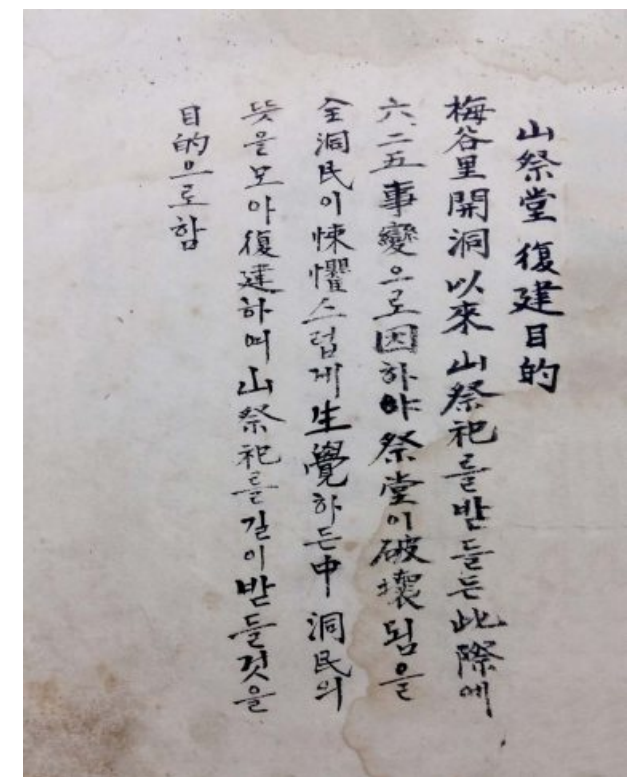 山祭堂 復建目的
梅谷里開洞以來 山祭祀를 받들든 此際에
六.二五事變으로 因하야 祭堂이 破壞됨을
全洞民이 悚懼스럽게 生覺하든中 洞民의
뜻을 모아 復建하며 山祭祀를 길이 받들것을
目的으로함